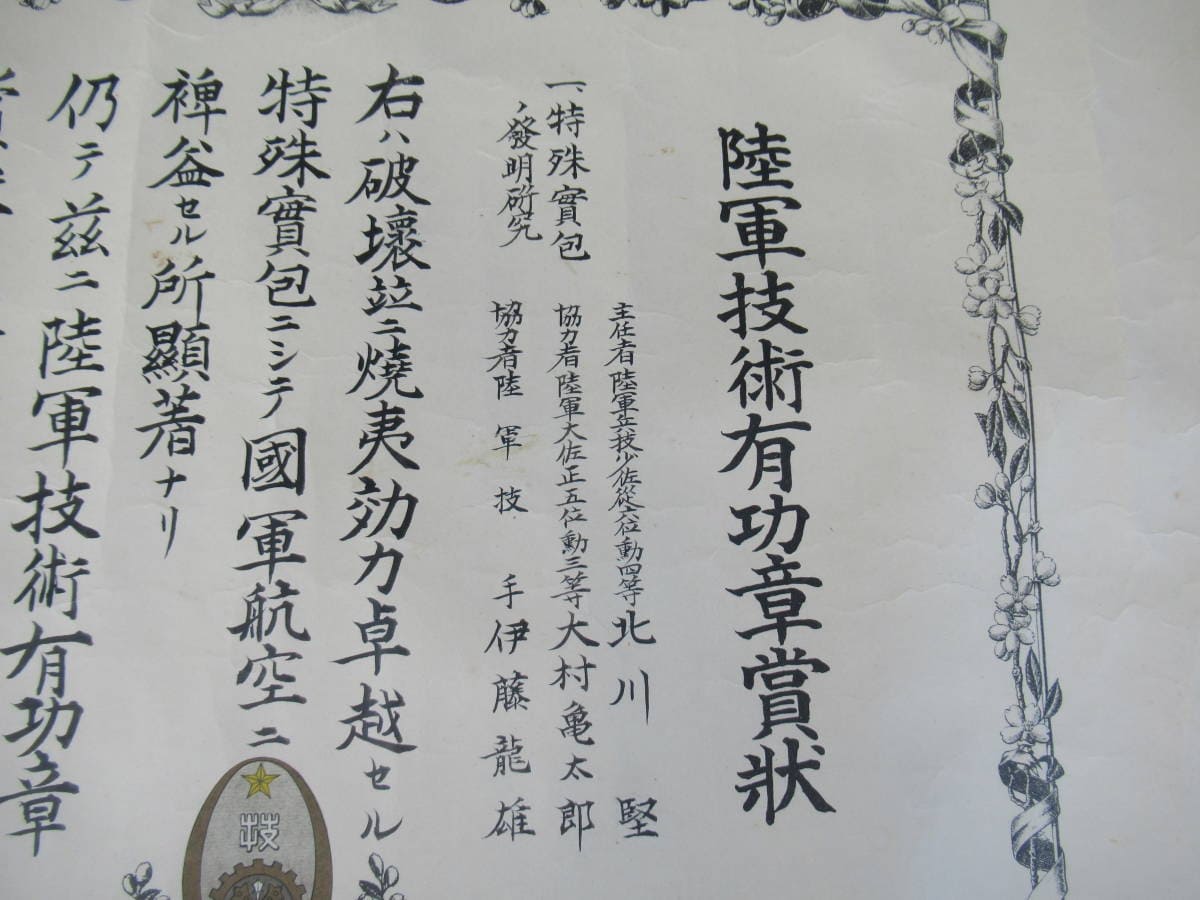 陸軍技術有功章賞狀
主任者陸軍兵技少佐從六位勳四等北川堅
一、特殊實包
ノ發明硏究
協力者陸軍大佐正五位勳三等大村亀太郎
協力者陸軍技手伊藤龍雄
右ハ破壞竝ニ燒夷効力卓越セル
特殊實包ニシテ國軍航空ニ
裨益セル所顯著ナリ
仍テ茲ニ陸軍技術有功章
技